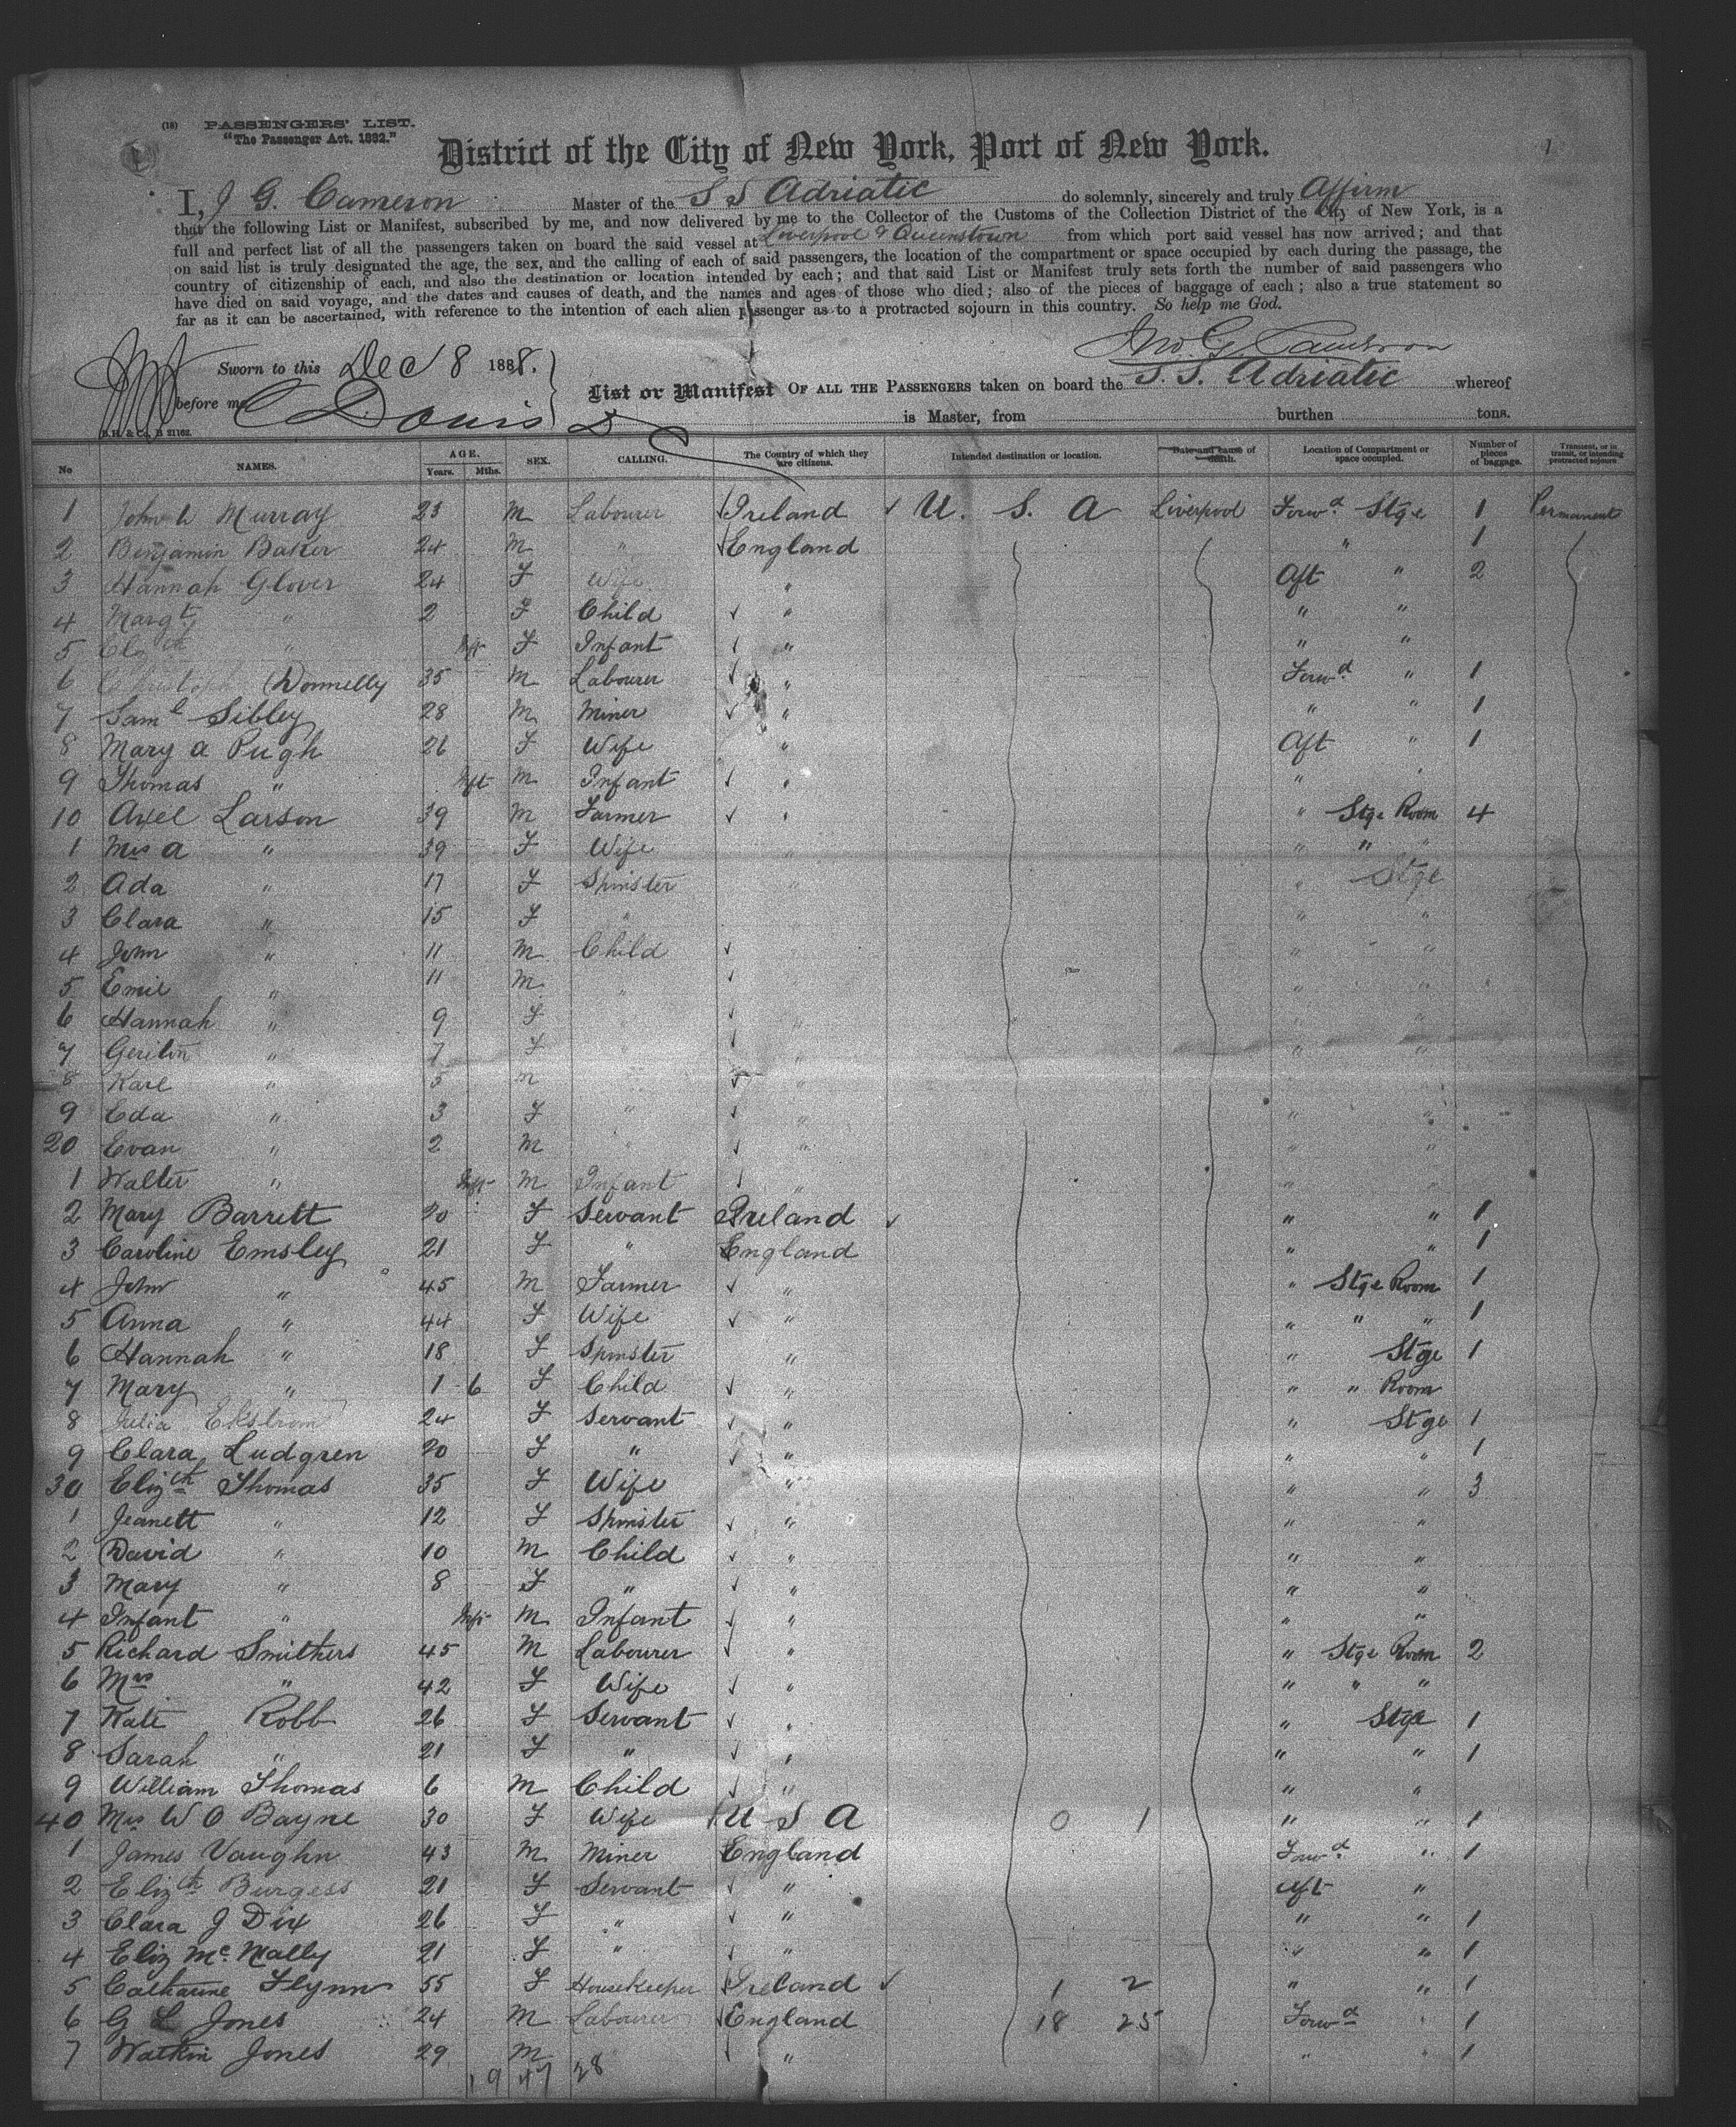 (18) PASSENGERS' LIST.
"The Passenger Act, 1882."
District of the City of New York, Port of New York.
1
I, J G. Cameron Master of the S S Adriatic do solemnly, sincerely and truly Affirm
that the following List or Manifest, subscribed by me, and now delivered by me to the Collector of the Customs of the Collection District of the City of New York, is a
full and perfect list of all the passengers taken on board the said vessel at Liverpool & Queenstown from which port said vessel has now arrived; and that
on said list is truly designated the age, the sex, and the calling of each of said passengers, the location of the compartment or space occupied by each during the passage, the
country of citizenship of each, and also the destination or location intended by each; and that said List or Manifest truly sets forth the number of said passengers who
have died on said voyage, and the dates and causes of death, and the names and ages of those who died; also of the pieces of baggage of each; also a true statement so
far as it can be ascertained, with reference to the intention of each alien passenger as to a protracted sojourn in this country. So help me God.
Jno G. Cameron
Sworn to this Dec 8 1888.
before me
List or Manifest OF ALL THE PASSENGERS taken on board the S. S. Adriatic whereof
is Master, from burthen tons.
B.H. & Co., B 21162.
No NAMES. AGE. Years. Mths. SEX. CALLING. The Country of which they are citizens. Intended destination or location. Date and cause of death. Location of Compartment or space occupied. Number of pieces of baggage. Transient, or in transit, or intending protracted sojourn
1 John Murray 23 M Labourer Ireland U. S. A Liverpool Forwd. Stge 1 Permanent
2 Benjamin Baker 24 M " England " 1
3 Hannah Glover 24 F Wife " Aft " 2
4 Margt " 2 F Child " " "
5 Elizth " Inft F Infant " " "
6 Christoph Donnelly 35 M Labourer " Forwd. " 1
7 Saml Sibley 28 M Miner " " " 1
8 Mary A Pugh 26 F Wife " Aft " 1
9 Thomas " Inft M Infant " " "
10 Axel Larson 39 M Farmer " " Stge Room 4
1 Mrs A " 39 F Wife " " " "
2 Ada " 17 F Spinster " " Stge
3 Clara " 15 F " " "
4 John " 11 M Child " "
5 Emil " 11 M " " "
6 Hannah " 9 F " " "
7 " 7 F " " "
8 Karl " 5 M " "
9 Eda " 3 F " " " "
20 Evan " 2 M " " " "
1 Walter " Inft M Infant " " "
2 Mary Barrett 20 F Servant Ireland " " 1
3 Caroline Emsley 21 F " England " " 1
4 John " 45 M Farmer " " Stge Room 1
5 Anna " 44 F Wife " " " " 1
6 Hannah " 18 F Spinster " " Stge 1
7 Mary " 1 6 F Child " " " Room
8 Julia Ekstrom 24 F Servant " " Stge 1
9 Clara Ludgren 20 F " " " " 1
30 Elizth Thomas 35 F Wife " " " 3
1 Jeanett " 12 F Spinster " " "
2 David " 10 M Child " " "
3 Mary " 8 F " " " "
4 Infant " Inft M Infant " " "
5 Richard Smithers 45 M Labourer " " Stge Room 2
6 Mrs " 42 F Wife " " " "
7 Kate Robb 26 F Servant " " Stge 1
8 Sarah " 21 F " " " " 1
9 William Thomas 6 M Child " " "
40 Mrs W O Bayne 30 F Wife U S A 0 1 " " 1
1 James Vaughn 43 M Miner England Forwd. " 1
2 Elizth Burgess 21 F Servant " Aft "
3 Clara J Dix 26 F " " " " 1
4 Eliz McNally 21 F " " " " 1
5 Catharine Flynn 55 F Housekeeper Ireland 1 2 " " 1
6 G L Jones 24 M Labourer England 18 25 Forwd " 1
7 Watkin Jones 29 M " " 1
19 47 28